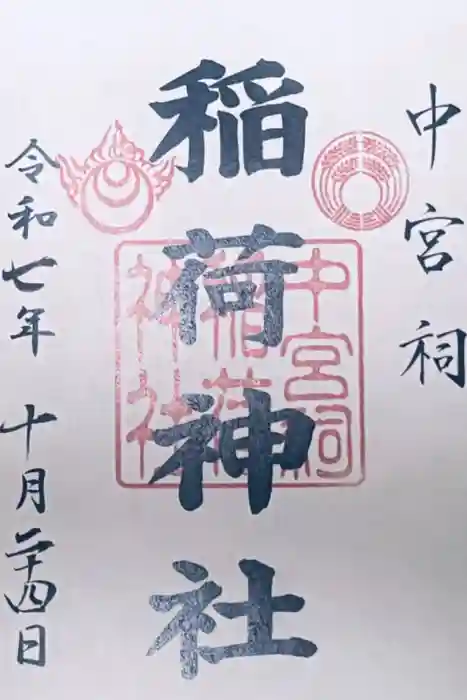 中宮祠
稲荷神社
中宮祠
稲荷
神社
令和七年 十月二十四日